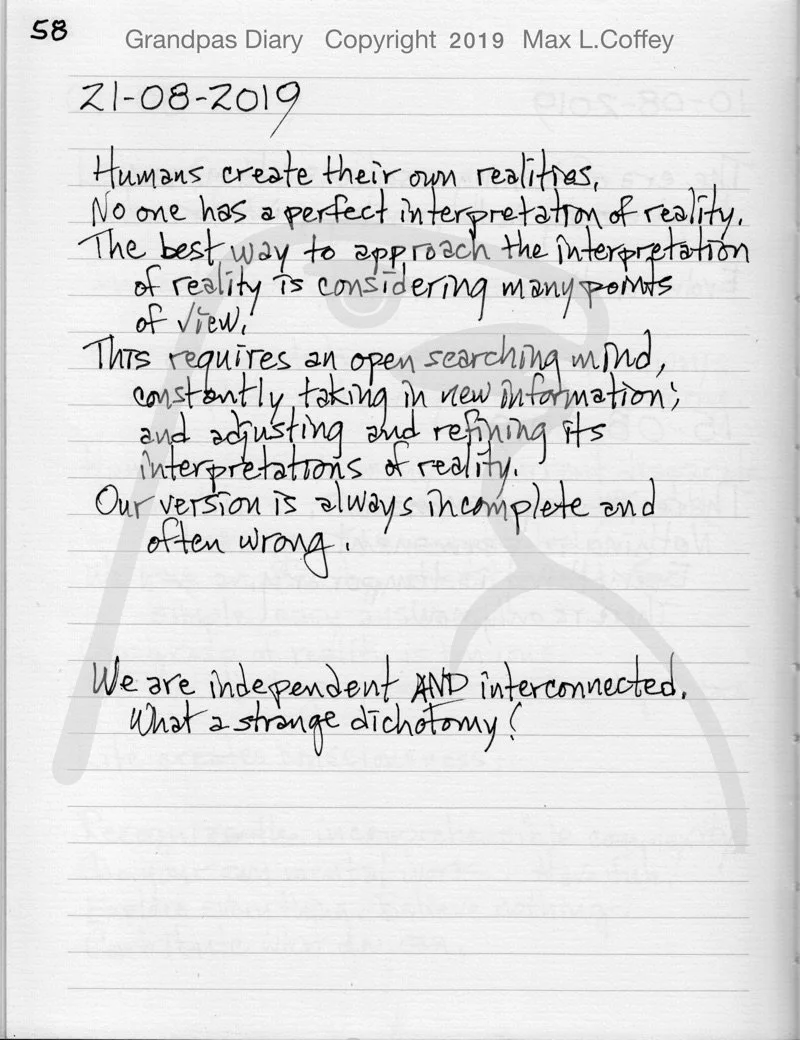 58
Grandpas Diary Copyright 2019 Max L.Coffey
21-08-2019
Humans create their own realities,
No one has a perfect interpretation of reality.
The best way to approach the interpretation
of reality is considering many points
of view.
This requires an open searching mind,
constantly taking in new information;
and adjusting and refining its
interpretations of reality.
Our version is always incomplete and
often wrong.
We are independent AND interconnected.
What a strange dichotomy!